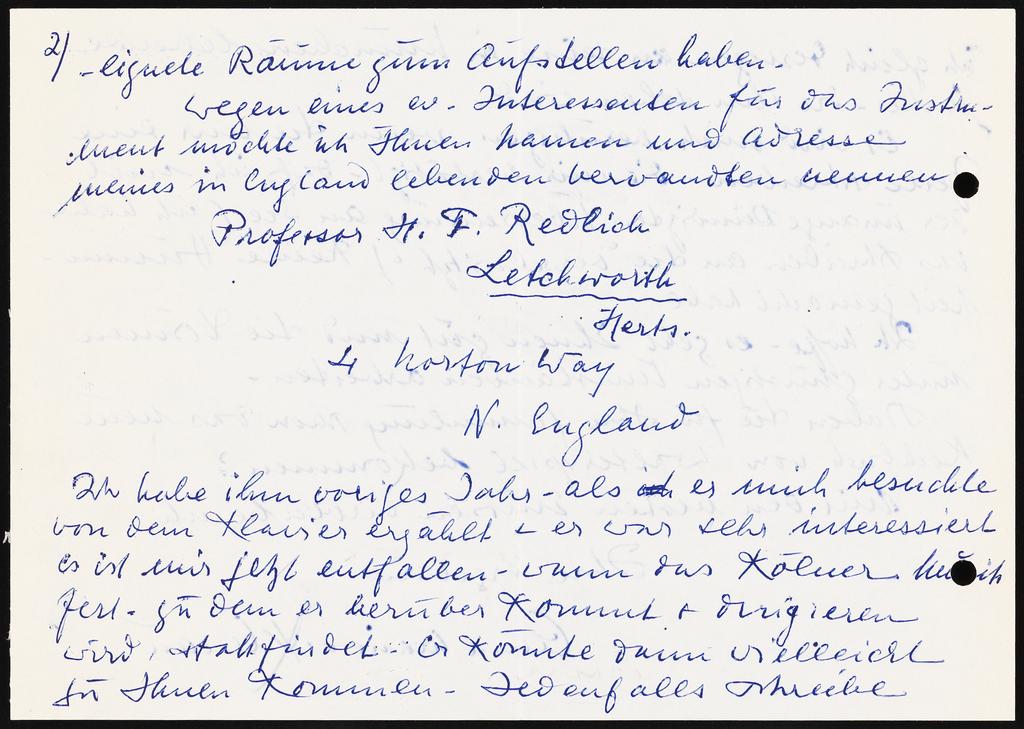 2)
-eignete Räume zum Aufstellen haben.
Wegen eines ev. Interessenten für das Instru-
ment möchte ich Ihnen Namen und Adresse
meines in England lebenden Verwandten nennen
Professor H. F. Redlich
Letchworth
Herts.
4 Norton Way
N. England
Ich habe ihm voriges Jahr - als er mich besuchte
von dem Klavier erzählt + er war sehr interessiert
es ist mir jetzt entfallen - wann das Kölner Musik
fest - zu dem er herüber kommt + dirigieren
wird, stattfindet - Er könnte dann vielleicht
zu Ihnen kommen - Jedenfalls schreibe